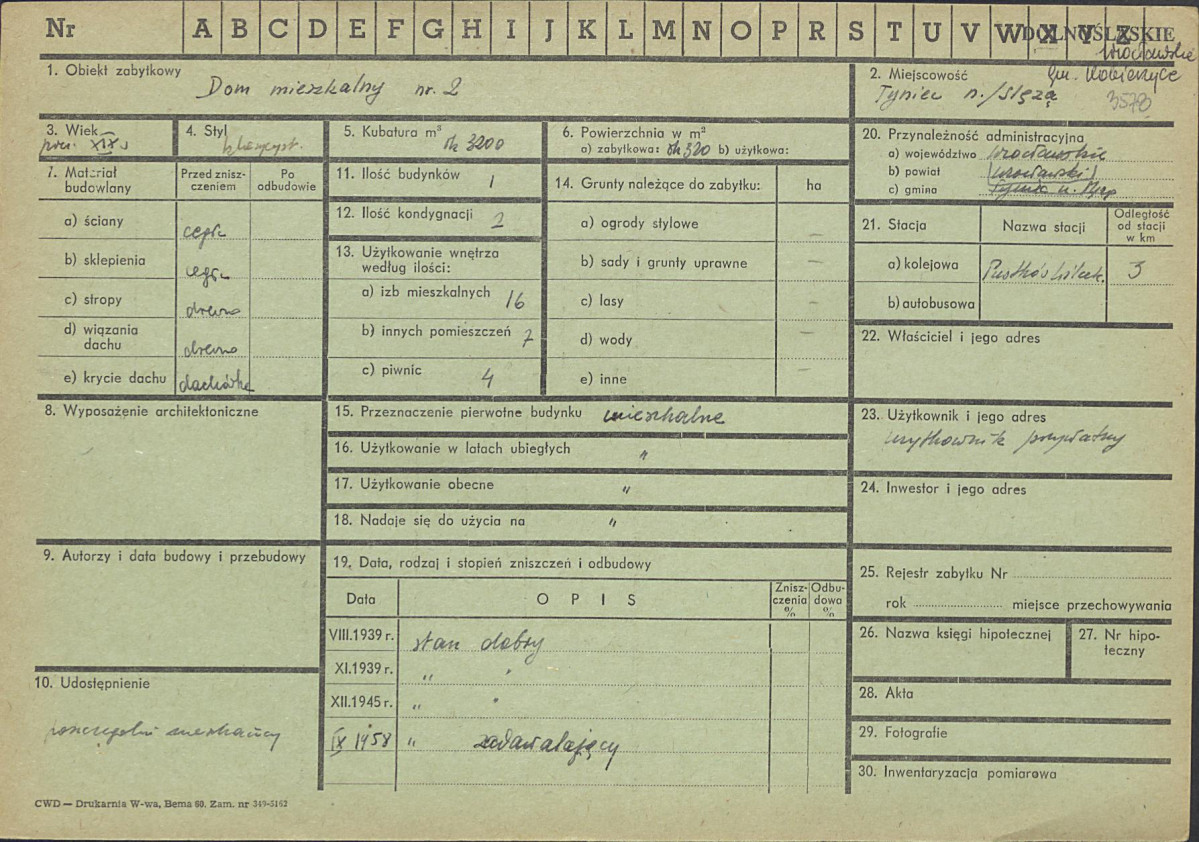 Nr A B C D E F G H I J K L M N O P R S T U V W X Y Z
DOLNOŚLĄSKIE
Wrocławskie
gm. Kobierzyce
1. Obiekt zabytkowy
Dom mieszkalny nr. 2
2. Miejscowość
Tyniec n./Ślęzą
3578
3. Wiek
pocz. XIX
4. Styl
klasycyst.
5. Kubatura m³
ok 3200
6. Powierzchnia w m²
a) zabytkowa: ok 320 b) użytkowa:
7. Materiał budowlany
Przed zniszczeniem
Po odbudowie
a) ściany cegła
b) sklepienia cegła
c) stropy drewno
d) wiązania dachu drewno
e) krycie dachu dachówka
8. Wyposażenie architektoniczne
9. Autorzy i data budowy i przebudowy
10. Udostępnienie
poszczególni mieszkańcy
11. Ilość budynków 1
12. Ilość kondygnacji 2
13. Użytkowanie wnętrza
według ilości:
a) izb mieszkalnych 16
b) innych pomieszczeń 7
c) piwnic 4
14. Grunty należące do zabytku: ha
a) ogrody stylowe –
b) sady i grunty uprawne –
c) lasy –
d) wody –
e) inne –
15. Przeznaczenie pierwotne budynku mieszkalne
16. Użytkowanie w latach ubiegłych "
17. Użytkowanie obecne "
18. Nadaje się do użycia na "
19. Data, rodzaj i stopień zniszczeń i odbudowy
Data OPIS Zniszczenia % Odbudowa %
VIII.1939 r. stan dobry
XI.1939 r. " "
XII.1945 r. " "
IX 1958 " zadawalający
20. Przynależność administracyjna
a) województwo wrocławskie
b) powiat (wrocławski)
c) gmina Tyniec n. Ślęzą
21. Stacja Nazwa stacji Odległość od stacji w km
a) kolejowa Pustków Wilcz. 3
b) autobusowa
22. Właściciel i jego adres
23. Użytkownik i jego adres
użytkownik prywatny
24. Inwestor i jego adres
25. Rejestr zabytku Nr
rok miejsce przechowywania
26. Nazwa księgi hipotecznej
27. Nr hipoteczny
28. Akta
29. Fotografie
30. Inwentaryzacja pomiarowa
CWD — Drukarnia W-wa, Bema 60. Zam. nr 349-5162